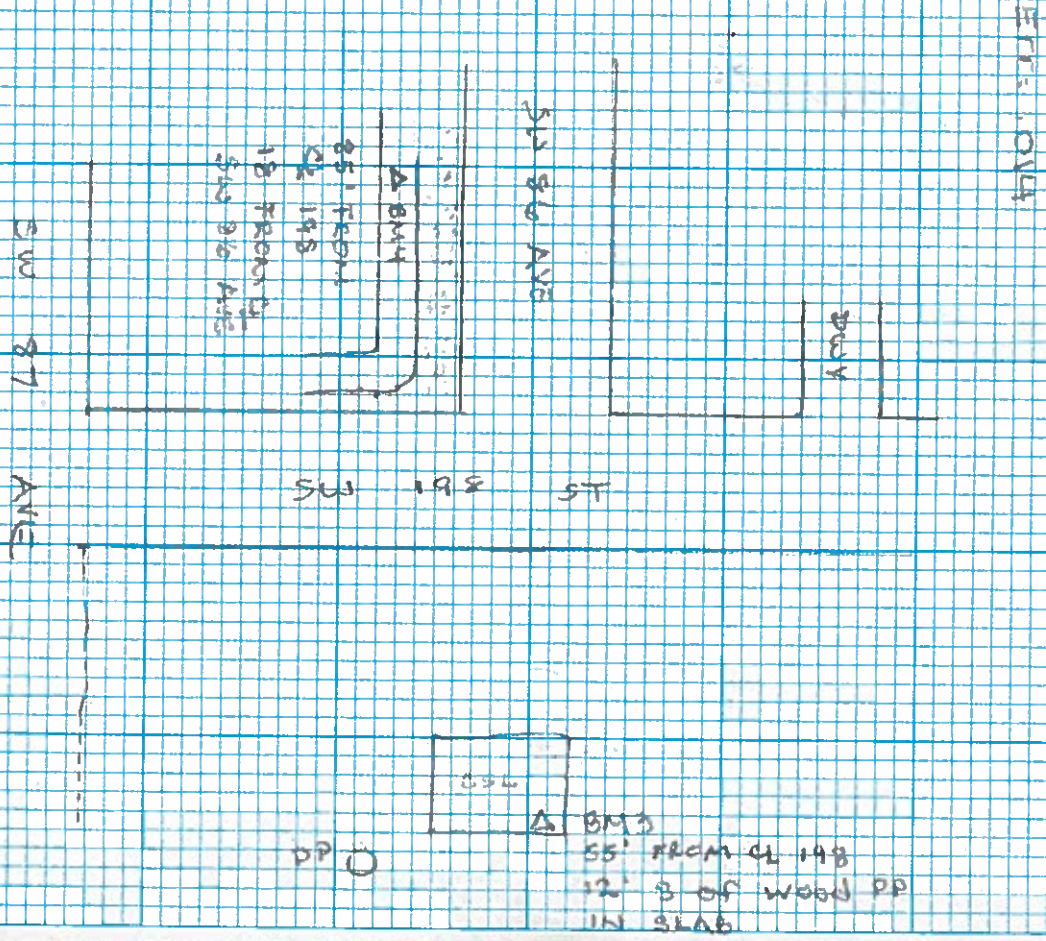 SW 86 AVE
DWY
△ BM4
85' FROM
CL 198
18' FROM CL
SW 86 AVE
SW 87 AVE
SW 198 ST
△ BM3
55' FROM CL 198
12' S OF WOOD PP
IN SLAB
PP